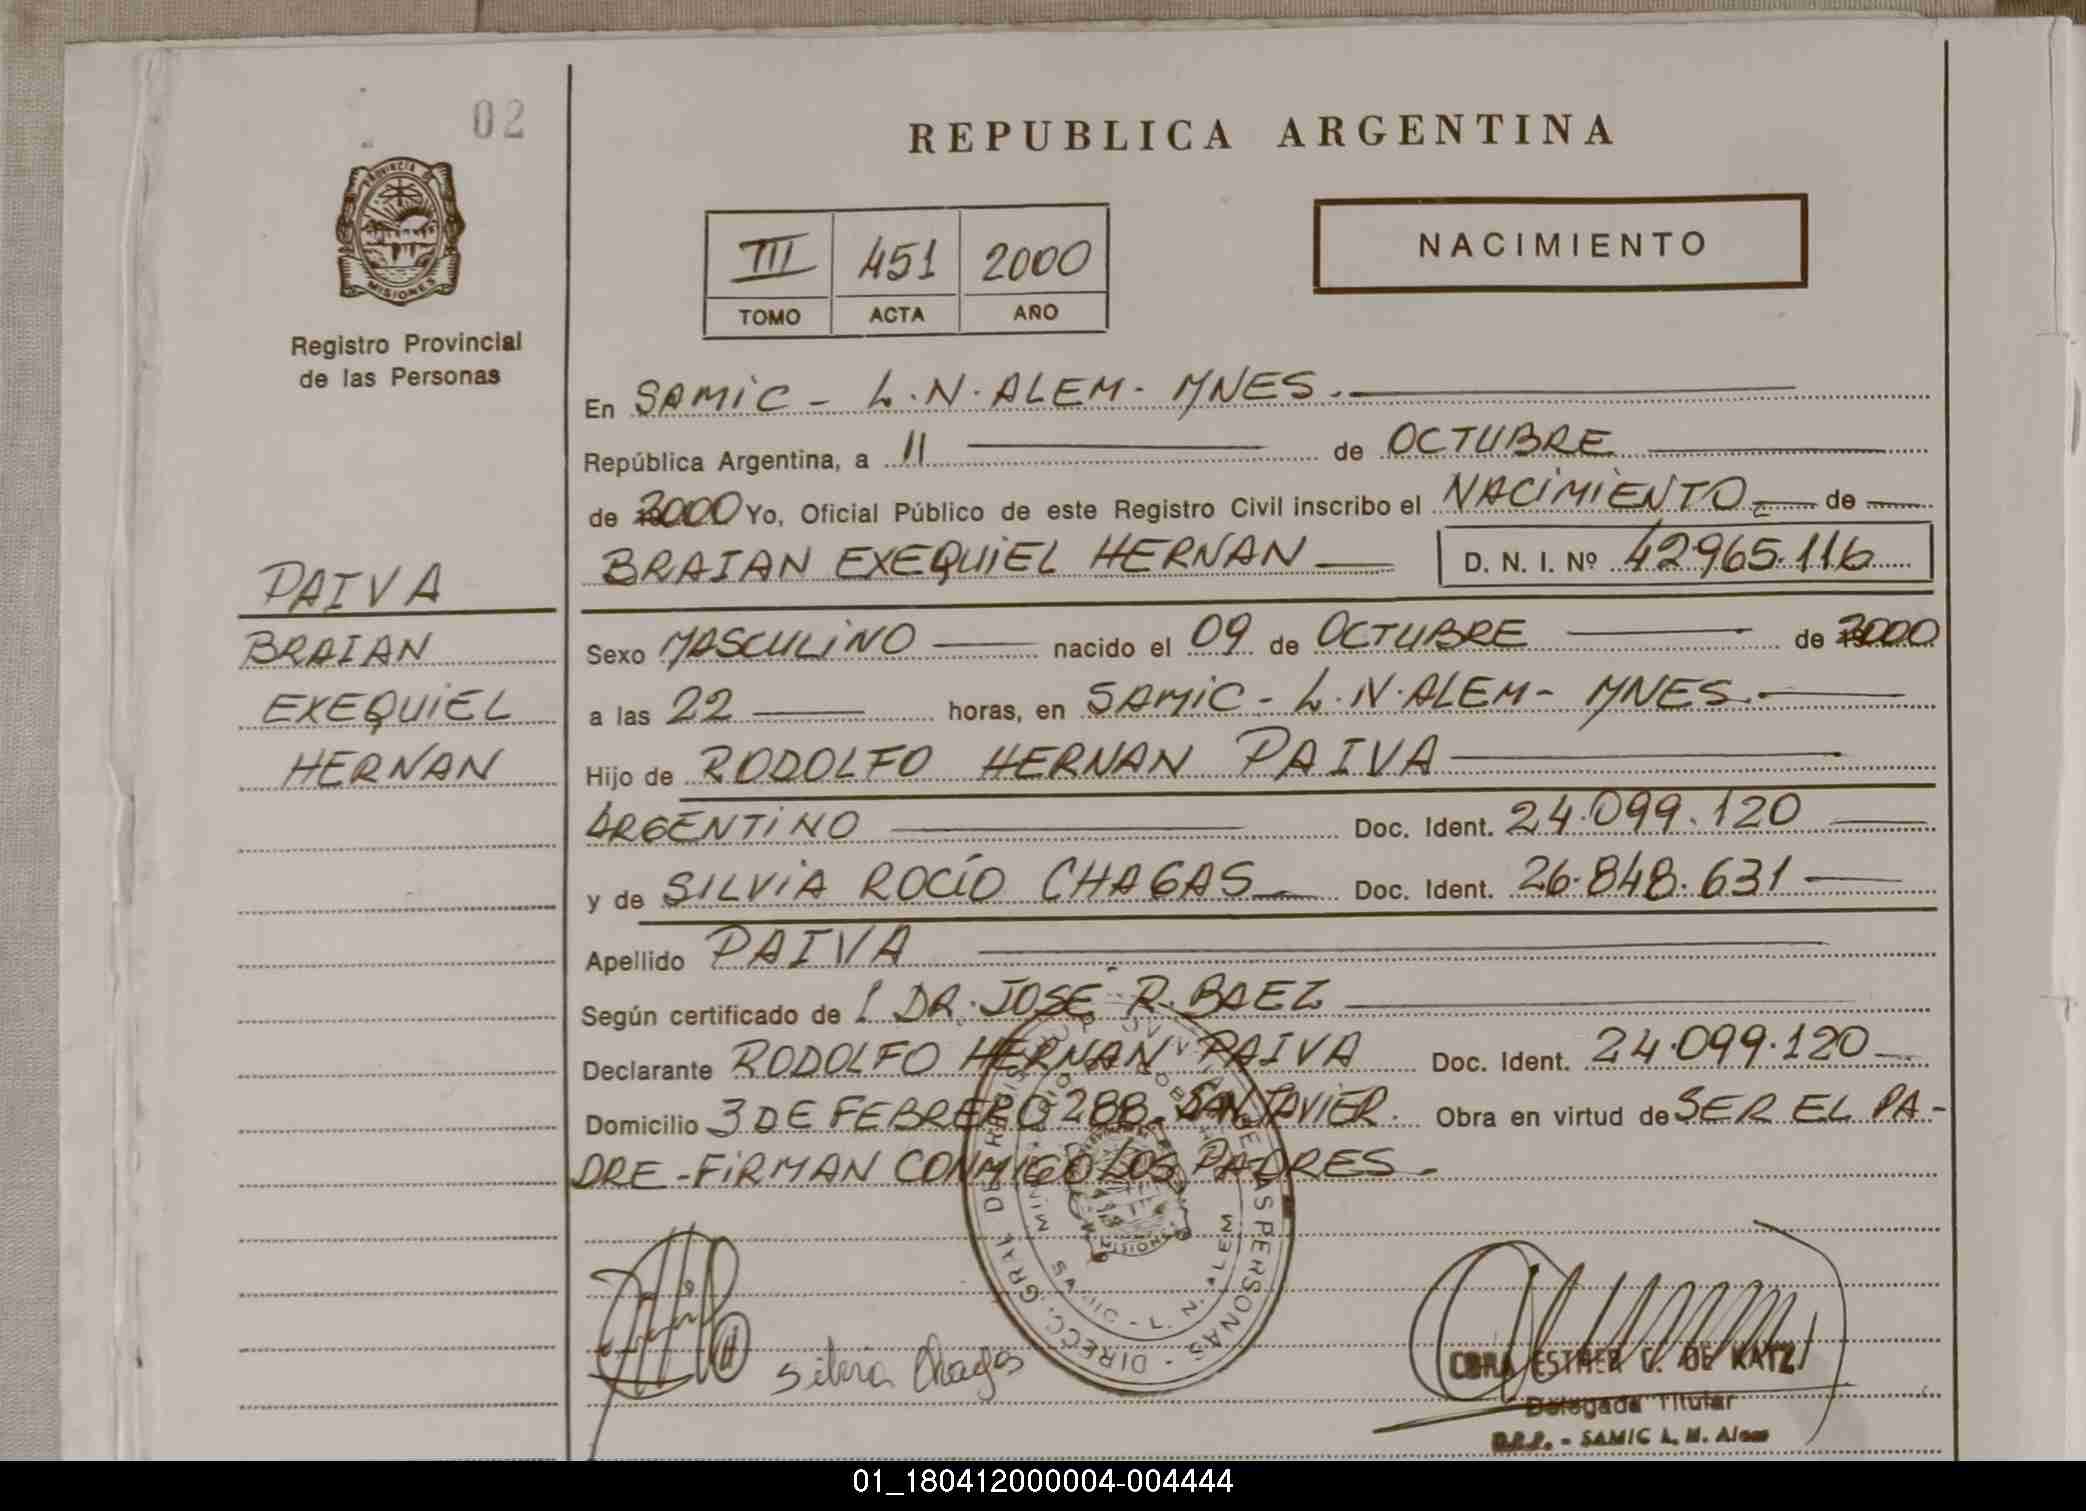 02
REPUBLICA ARGENTINA
PROVINCIA DE
MISIONES
Registro Provincial
de las Personas
III 451 2000
TOMO ACTA AÑO
NACIMIENTO
En SAMIC - L.N.ALEM - MNES.
República Argentina, a 11 de OCTUBRE
de 2000 Yo, Oficial Público de este Registro Civil inscribo el NACIMIENTO de
BRAIAN EXEQUIEL HERNAN D. N. I. Nº 42965.116
PAIVA
BRAIAN
EXEQUIEL
HERNAN
Sexo MASCULINO nacido el 09 de OCTUBRE de 2000
a las 22 horas, en SAMIC - L.N.ALEM - MNES.
Hijo de RODOLFO HERNAN PAIVA
ARGENTINO Doc. Ident. 24.099.120
y de SILVIA ROCÍO CHAGAS Doc. Ident. 26.848.631
Apellido PAIVA
Según certificado de l DR. JOSÉ R. BAEZ
Declarante RODOLFO HERNAN PAIVA Doc. Ident. 24.099.120
Domicilio 3 DE FEBRERO 288 - SAN JAVIER. Obra en virtud de SER EL PA-
DRE - FIRMAN CONMIGO LOS PADRES -
DIRECC. GRAL DE PERSONAS
MISIONES
L. N. ALEM
Silvia Chagas
ESTHER C. DE KATZ
Delegada Titular
SAMIC L. N. Alem
01_180412000004-004444